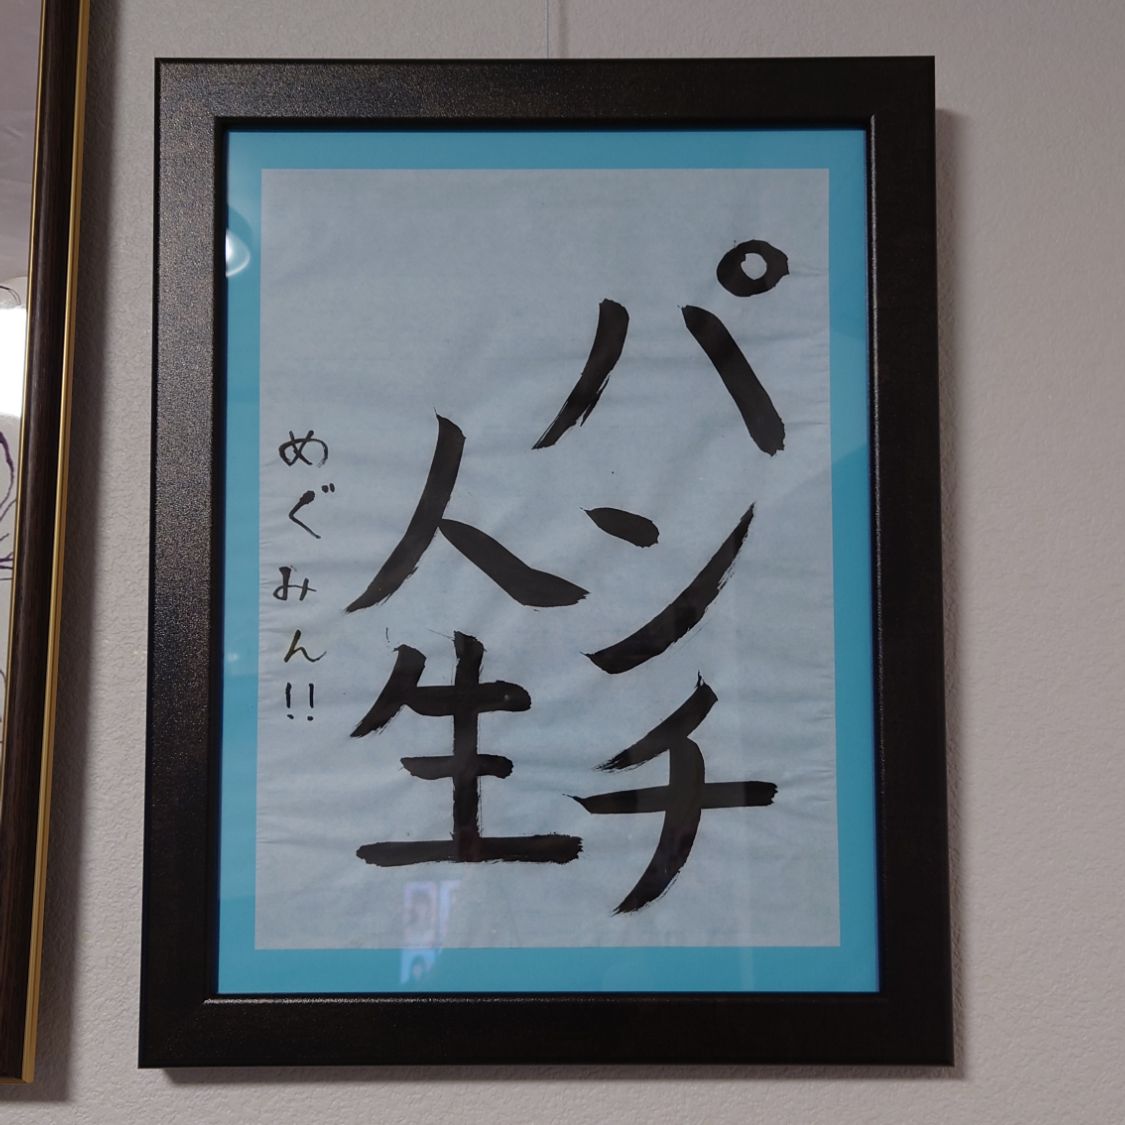 パンチ
人生
めぐみん!!